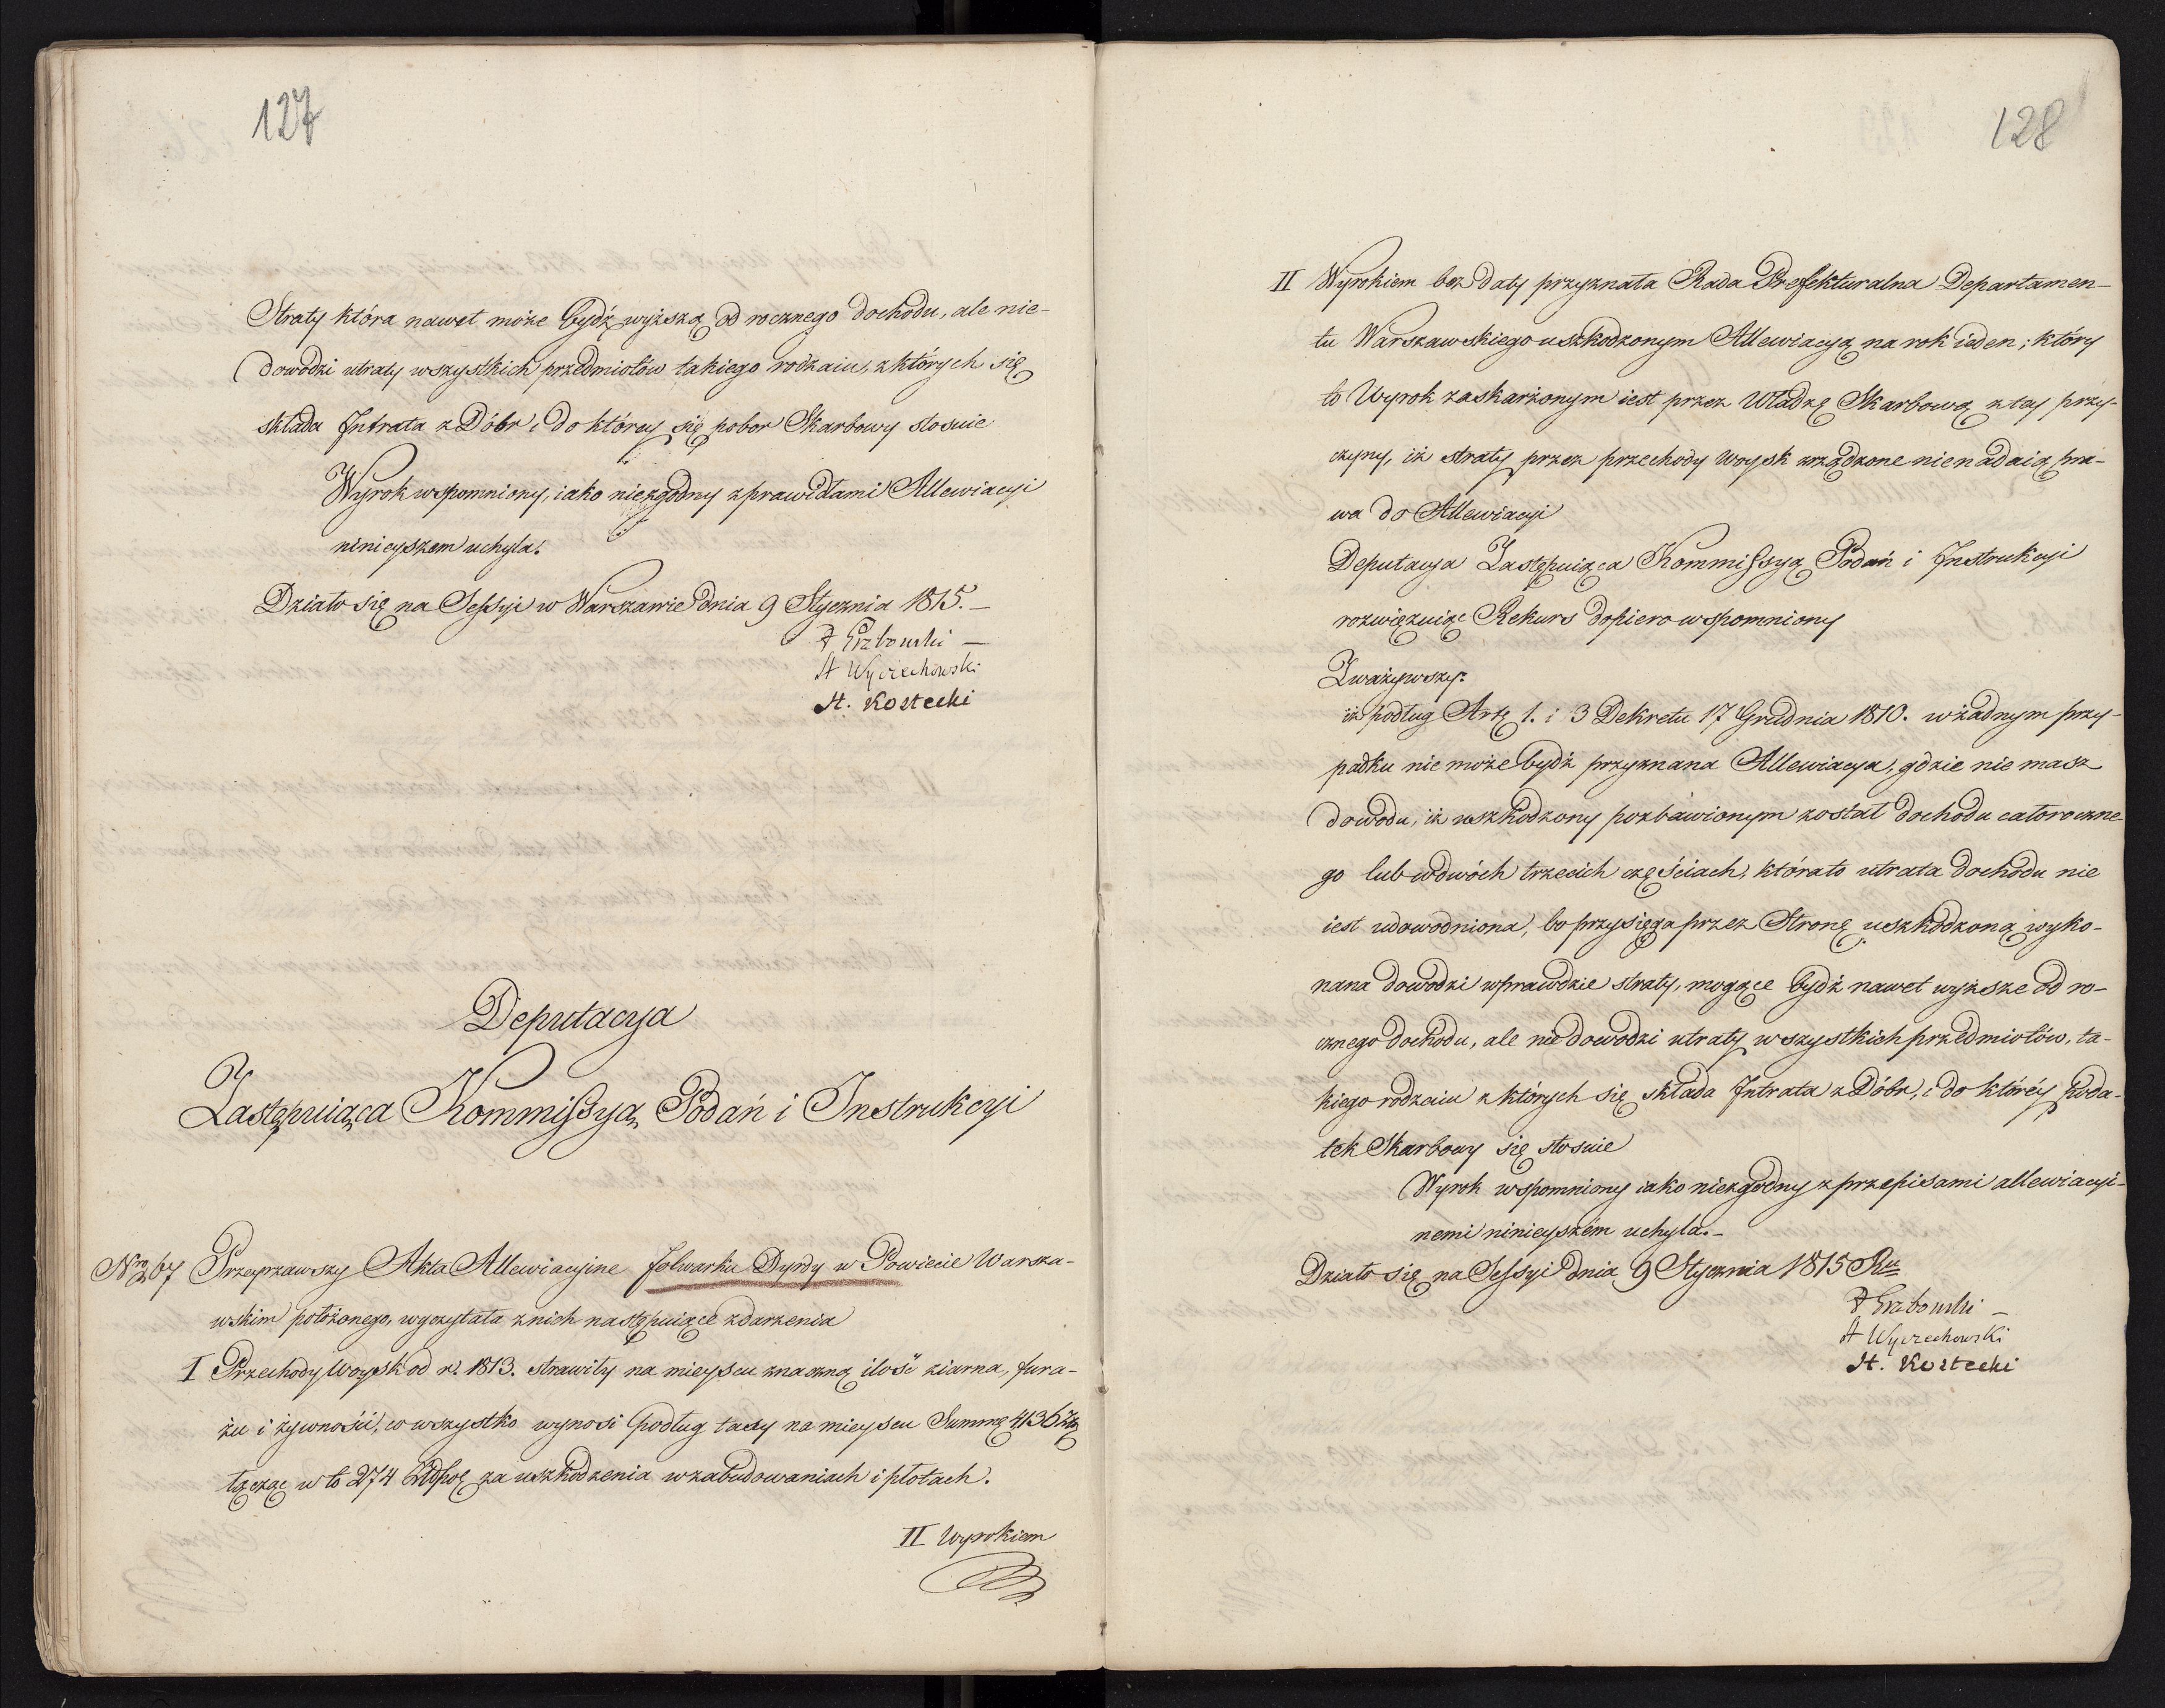 127
Straty która nawet może bydź wyższą od rocznego dochodu, ale nie-
dowodzi utraty wszystkich przedmiotów takiego rodzaiu, z których się
składa Intrata z Dóbr i do którey się pobor Skarbowy stosuie
Wyrok wspomniony, iako niezgodny z prawidłami Allewiacyi
ninieyszem uchyla.
Działo się na Sessyi w Warszawie dnia 9 Stycznia 1815. —
F Grabowski —
A Wyczechowski
A. Kostecki
Deputacya
Zastępuiąca Kommissyą Podań i Instrukcyi
Nro 67 Przeyrzawszy Akta Allewiacyine folwarku Dyrdy w Powiecie Warsza-
wskim położonego, wyczytała z nich następuiące zdarzenia
I Przechody Woysk od r. 1813. strawiły na mieyscu znaczną ilość ziarna, fura-
żu i żywności, co wszystko wynosi podług taxy na mieyscu Summę 4136 Złp
łącząc w to 274 Złpol za uszkodzenia w zabudowaniach i płotach.
II Wyrokiem
128
II Wyrokiem bez daty przyznała Rada Prefekturalna Departamen-
tu Warszawskiego uszkodzonym Allewiacyą na rok ieden; który
to Wyrok zaskarżonym iest przez Władzę Skarbową z tey przy-
czyny, iż straty przez przechody Woysk zrządzone nie nadaią pra-
wa do Allewiacyi
Deputacya Zastępuiąca Kommissyą Podań i Instrukcyi
rozwięzuiąc Rekurs dopiero wspomniony
Zważywszy:
iż podług Art 1. i 3 Dekretu 17 Grudnia 1810. w żadnym przy-
padku nie może bydź przyznana Allewiacya, gdzie nie masz
dowodu, iż uszkodzony pozbawionym został dochodu całoroczne-
go lub w dwóch trzecich częściach, która to utrata dochodu nie
iest udowodniona, bo przysięga przez Stronę uszkodzoną wyko-
nana dowodzi wprawdzie straty, mogące bydź nawet wyższe od ro-
cznego dochodu, ale nie dowodzi utraty wszystkich przedmiotów, ta-
kiego rodzaiu z których się składa Intrata z Dóbr, i do którey poda-
tek Skarbowy się stosuie
Wyrok wspomniony iako niezgodny z przepisami allewiacyi-
nemi ninieyszém uchyla. —
Działo się na Sessyi dnia 9 Stycznia 1815 Ru
F Grabowski —
A Wyczechowski
A. Kostecki